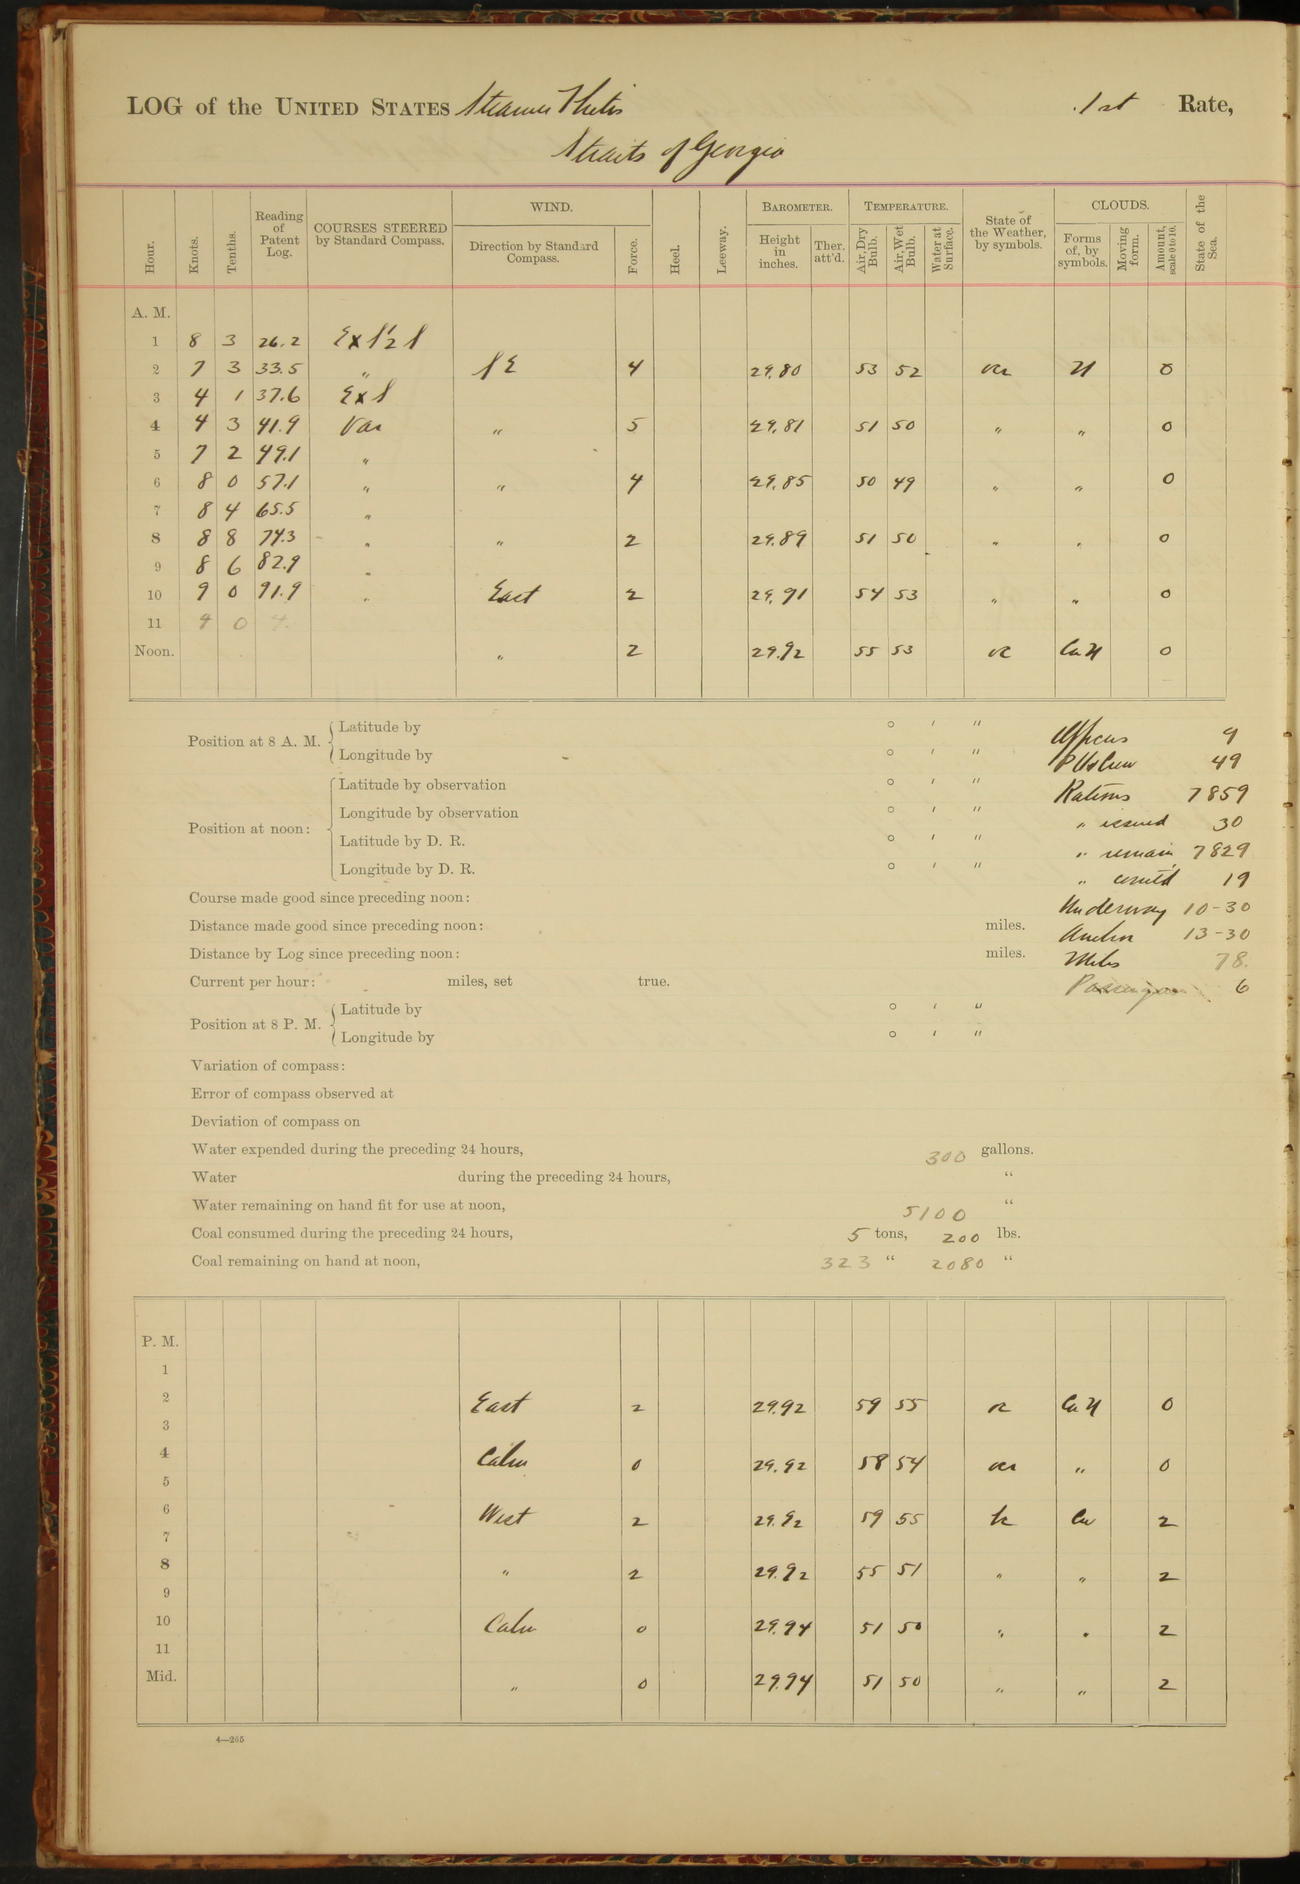 LOG of the UNITED STATES Steamer Thetis 1st Rate,
Straits of Georgia
Hour. Knots. Tenths. Reading of Patent Log. COURSES STEERED by Standard Compass. WIND. Direction by Standard Compass. Force. Heel. Leeway. BAROMETER. Height in inches. Ther. att'd. TEMPERATURE. Air, Dry Bulb. Air, Wet Bulb. Water at Surface. State of the Weather, by symbols. CLOUDS. Forms of, by symbols. Moving form. Amount, scale 0 to 10. State of the Sea.
A. M.
1 8 3 26.2 ExS½S
2 7 3 33.5 " SE 4 29.80 53 52 ocr N 0
3 4 1 37.6 ExS
4 4 3 41.9 Var " 5 29.81 51 50 " " 0
5 7 2 49.1 "
6 8 0 57.1 " " 4 29.85 50 49 " " 0
7 8 4 65.5 "
8 8 8 74.3 " " 2 29.89 51 50 " " 0
9 8 6 82.9 "
10 9 0 91.9 " East 2 29.91 54 53 " " 0
11 9 0
Noon. " 2 29.92 55 53 oc CuN 0
Position at 8 A. M. Latitude by ° ′ ″
Longitude by ° ′ ″
Position at noon: Latitude by observation ° ′ ″
Longitude by observation ° ′ ″
Latitude by D. R. ° ′ ″
Longitude by D. R. ° ′ ″
Officers 9
Crew 49
Rations 7859
" issued 30
" remain 7829
" comt'd 19
Underway 10-30
Anchor 13-30
Miles 78.
Passengers 6
Course made good since preceding noon:
Distance made good since preceding noon: miles.
Distance by Log since preceding noon: miles.
Current per hour: miles, set true.
Position at 8 P. M. Latitude by ° ′ ″
Longitude by ° ′ ″
Variation of compass:
Error of compass observed at
Deviation of compass on
Water expended during the preceding 24 hours, 300 gallons.
Water during the preceding 24 hours, "
Water remaining on hand fit for use at noon, 5100 "
Coal consumed during the preceding 24 hours, 5 tons, 200 lbs.
Coal remaining on hand at noon, 323 " 2080 "
P. M.
1
2 East 2 29.92 59 55 oc CuN 0
3
4 Calm 0 29.92 58 54 ocr " 0
5
6 West 2 29.92 59 55 bc Cu 2
7
8 " 2 29.92 55 51 " " 2
9
10 Calm 0 29.94 51 50 " " 2
11
Mid. " 0 29.94 51 50 " " 2
4—265